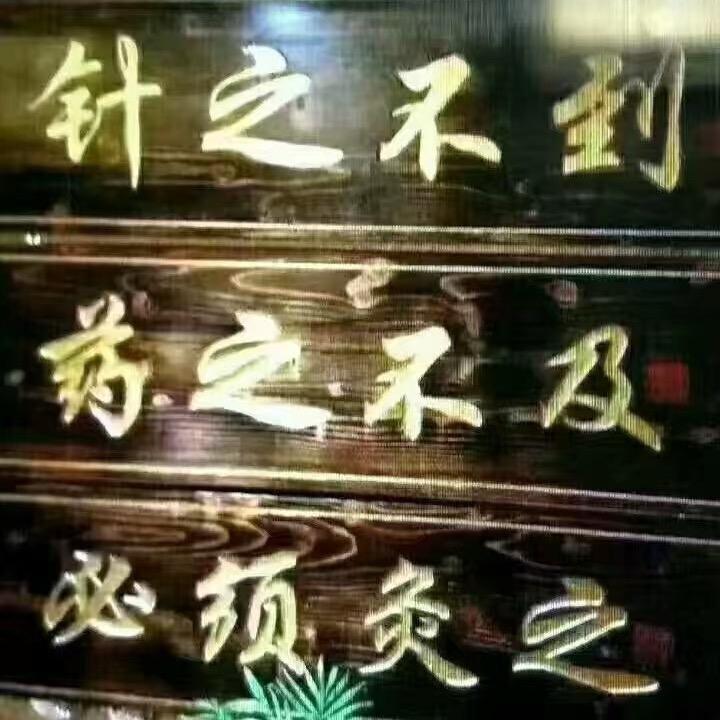 针之不到
药之不及
必须灸之